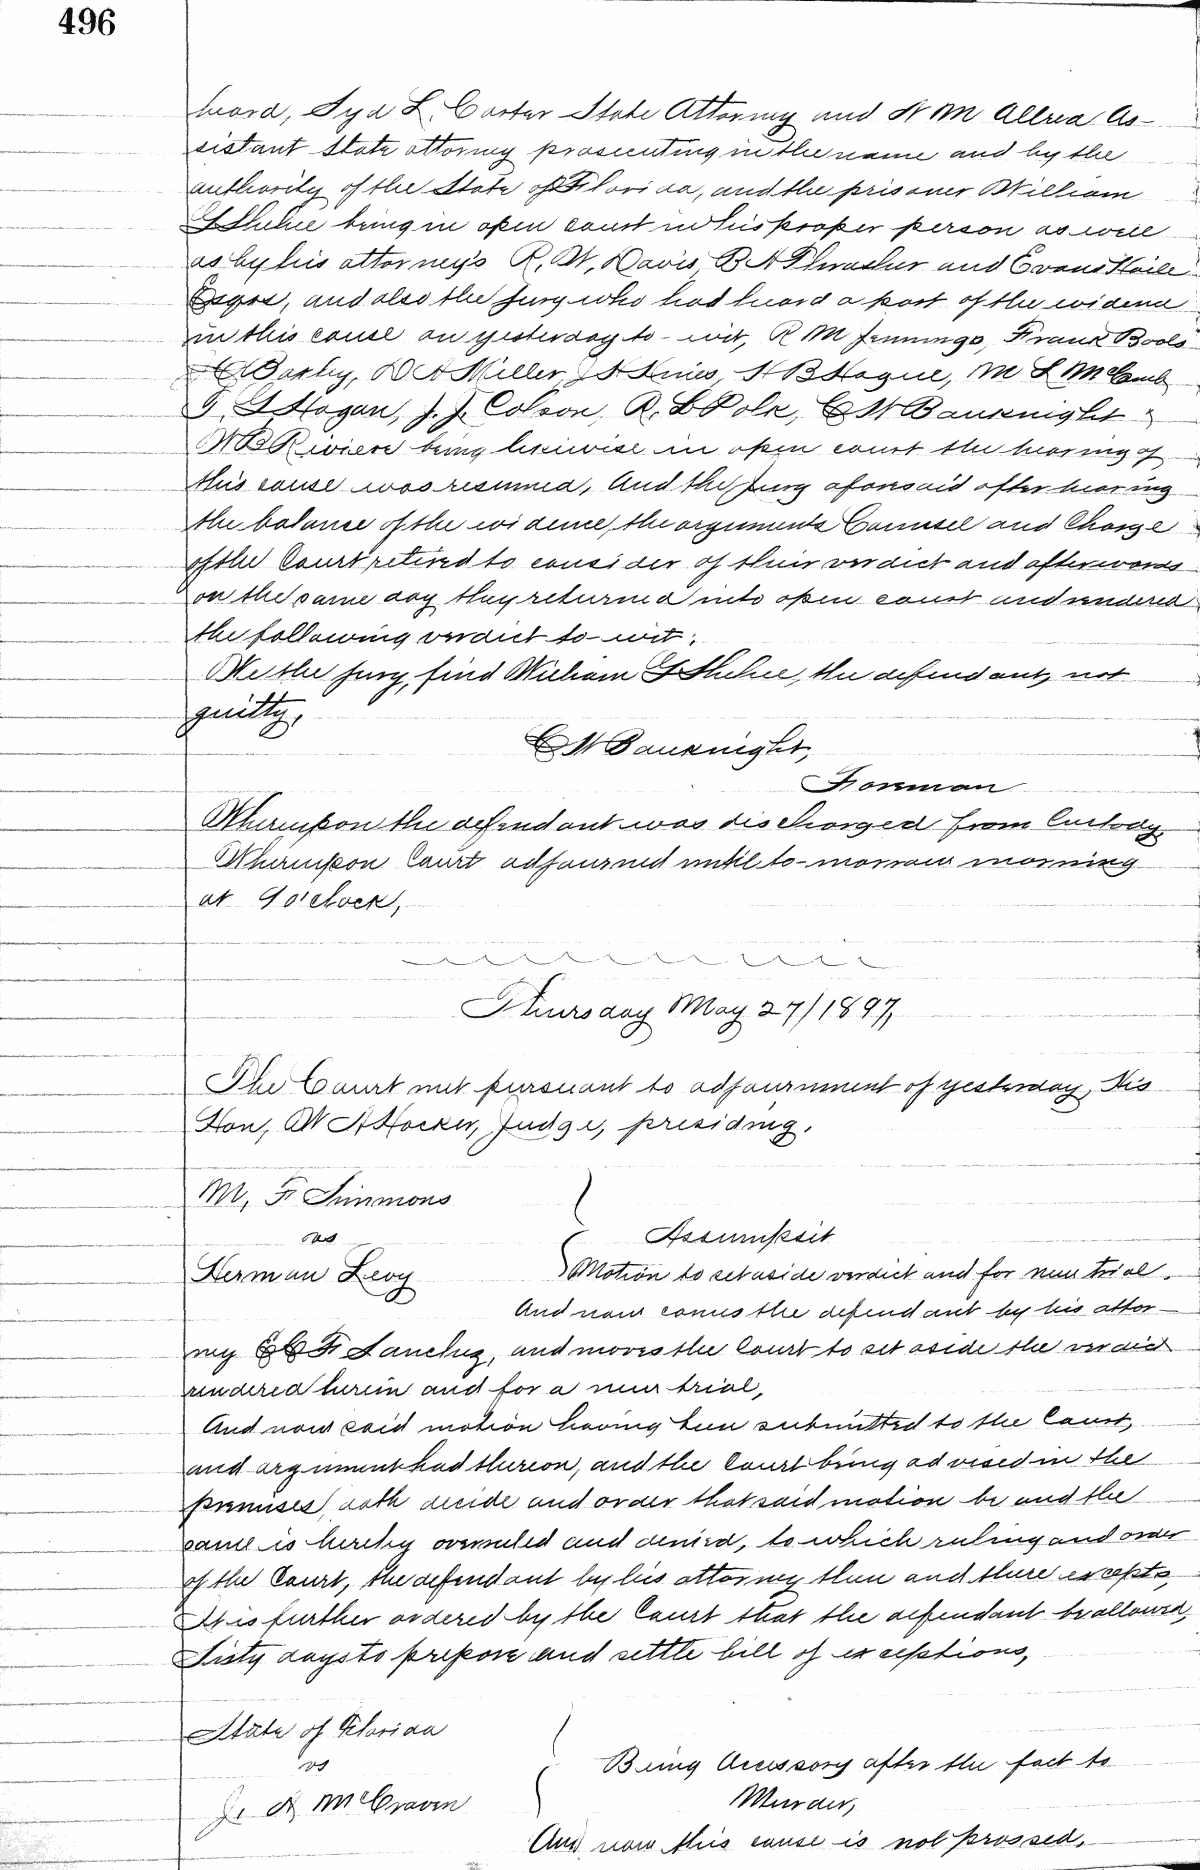 496
heard, Syd L. Carter State Attorney and W M Allred As-
sistant State attorney prosecuting in the name and by the
authority of the State of Florida, and the prisoner William
G Shehee being in open court in his proper person as well
as by his attorney's R. W. Davis, B A Thrasher and Evans Haile
Esqrs, and also the jury who had heard a part of the evidence
in this cause on yesterday to-wit, R M Jennings, Frank Bools
Barby, D A Miller, J A Knies, H B Hague, M L McComb
T. G Hagan, J. J. Colson, R. L Polk, C W Bauknight &
W B Riviere being likewise in open court the hearing of
this cause was resumed, And the jury aforesaid after hearing
the balance of the evidence, the arguments Counsel and Charge
of the Court retired to consider of their verdict and afterwards
on the same day they returned into open court and rendered
the following verdict to-wit:
We the jury, find William G Shehee, the defendant, not
guilty,
C W Bauknight,
Foreman
Whereupon the defendant was discharged from Custody,
Whereupon Court adjourned until to-morrow morning
at 9 o'clock,
Thursday May 27/1897,
The Court met pursuant to adjournment of yesterday, His
Hon, W A Hocker, Judge, presiding.
M, F Simmons
vs
Assumpsit
Herman Levy
Motion to set aside verdict and for new trial.
And now comes the defendant by his attor-
ney E C F Sanchez, and moves the Court to set aside the verdict
rendered herein and for a new trial,
And now said motion having been submitted to the Court,
and argument had thereon, and the Court being advised in the
premises, doth decide and order that said motion be and the
same is hereby overruled and denied, to which ruling and order
of the Court, the defendant by his attorney then and there excepts,
It is further ordered by the Court that the defendant be allowed,
Sixty days to prepare and settle bill of exceptions,
State of Florida
vs
Being Accessory after the fact to
J. A McCraven
Murder,
And now this cause is nol prossed.